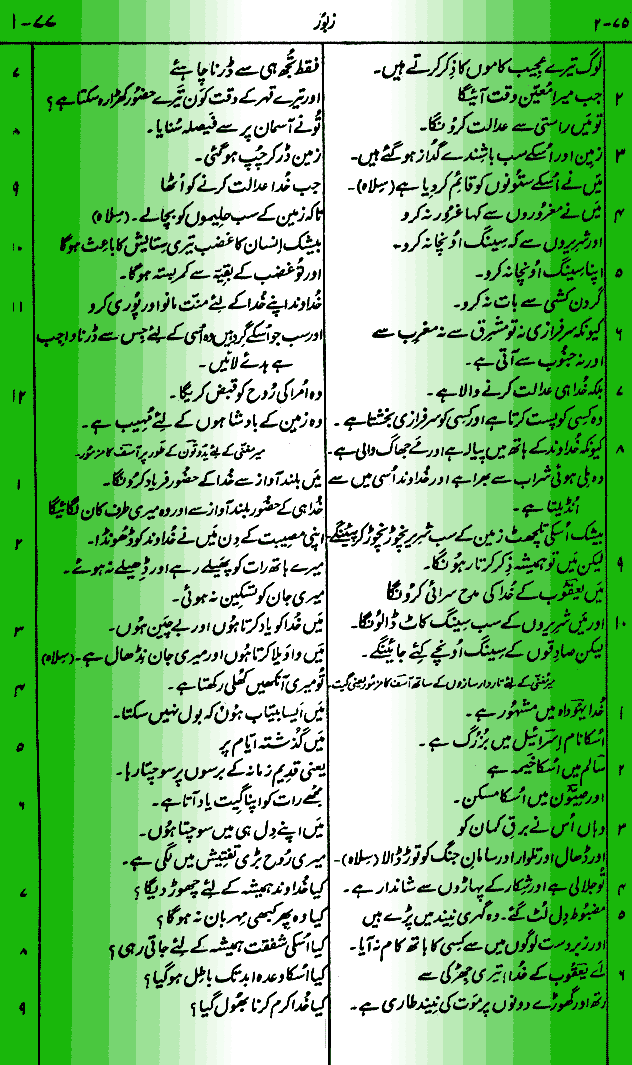 ۲-۷۵
زبُور
۱-۷۷
لوگ تیرے عجیب کاموں کا ذِکر کرتے ہیں۔
۲ جب میرا مُعیّن وقت آئیگا
تو مَیں راستی سے عدالت کرُونگا۔
۳ زمین اور اُسکے سب باشِندے گُداز ہوگئے ہیں۔
مَیں نے اُسکے سُتُونوں کو قائم کر دیا ہے (سِلاہ)۔
۴ مَیں نے مغرُوروں سے کہا غرُور نہ کرو
اور شرِیروں سے کہ سینگ اُونچا نہ کرو۔
۵ اپنا سینگ اُونچا نہ کرو۔
گردن کشی سے بات نہ کرو۔
۶ کیونکہ سرفرازی نہ تو مشرِق سے نہ مغرِب سے
اور نہ جنُوب سے آتی ہے۔
۷ بلکہ خُدا ہی عدالت کرنے والا ہے۔
وہ کِسی کو پست کرتا ہے اور کِسی کو سرفرازی بخشتا ہے۔
۸ کیونکہ خُداوند کے ہاتھ میں پیالہ ہے اور مَے جھاگ والی ہے۔
وہ مِلی ہوئی شراب سے بھرا ہے اور خُداوند اُسی میں سے
اُنڈیلتا ہے۔
بیشک اُسکی تلچھٹ زمین کے سب شرِیر نِچوڑ نِچوڑ کر پِئینگے۔
۹ لیکن مَیں تو ہمیشہ ذِکر کرتا رہُونگا۔
مَیں یعقُوب کے خُدا کی مدح سرائی کرُونگا
۱۰ اور مَیں شرِیروں کے سب سینگ کاٹ ڈالُونگا۔
لیکن صادِقوں کے سینگ اُونچے کئے جائینگے۔
میر مُغنّی کے لئے تاردار سازوں کے ساتھ آسف کا مزمُور یعنی گیت۔
۱ خُدا یہُوداہ میں مشہُور ہے۔
اُسکا نام اِسرائیل میں بزُرگ ہے۔
۲ سالِم میں اُسکا خیمہ ہے
اور صِیُّون میں اُسکا مسکن۔
۳ وہاں اُس نے برقِ کمان کو
اور ڈھال اور تلوار اور سامانِ جنگ کو توڑ ڈالا (سِلاہ)۔
۴ تُو جلالی ہے اور شِکار کے پہاڑوں سے شاندار ہے۔
۵ مضبُوط دِل لُٹ گئے۔ وہ گہری نیند میں پڑے ہیں
اور زبردست لوگوں میں سے کِسی کا ہاتھ کام نہ آیا۔
۶ اَے یعقُوب کے خُدا! تیری جِھڑکی سے
رتھ اور گھوڑے دونوں پر مَوت کی نیند طاری ہے۔
۷ فقط تُجھ ہی سے ڈرنا چاہئے
اور تیرے قہر کے وقت کَون تیرے حضُور کھڑا رہ سکتا ہے؟
۸ تُو نے آسمان پر سے فَیصلہ سُنایا۔
زمین ڈر کر چُپ ہوگئی۔
۹ جب خُدا عدالت کرنے کو اُٹھا
تاکہ زمین کے سب حلِیموں کو بچا لے۔ (سِلاہ)
۱۰ بیشک اِنسان کا غضب تیری سِتایش کا باعِث ہوگا
اور تُو غضب کے بقِیّہ سے کمربستہ ہوگا۔
۱۱ خُداوند اپنے خُدا کے لئے مَنّت مانو اور پُوری کرو
اور سب جو اُسکے گِرد ہیں وہ اُسی کے لئے جِس سے ڈرنا واجِب
ہے ہدئے لائیں۔
۱۲ وہ اُمرا کی رُوح کو قبض کریگا۔
وہ زمین کے بادشاہوں کے لئے مُہِیب ہے۔
میر مُغنّی کے لئے یدُوتُون کے طَور پر آسف کا مزمُور۔
۱ مَیں بُلند آواز سے خُدا کے حضُور فریاد کرُونگا۔
خُدا ہی کے حضُور بُلند آواز سے اور وہ میری طرف کان لگائیگا
۲ اپنی مُصیبت کے دِن مَیں نے خُداوند کو ڈُھونڈا۔
میرے ہاتھ رات کو پھیلے رہے اور ڈِھیلے نہ ہوئے۔
میری جان کو تسکین نہ ہُوئی۔
۳ مَیں خُدا کو یاد کرتا ہُوں اور بے چَین ہُوں۔
مَیں واوَیلا کرتا ہُوں اور میری جان نِڈھال ہے۔ (سِلاہ)
۴ تُو میری آنکھیں کُھلی رکھتا ہے۔
مَیں اَیسا بیتاب ہُوں کہ بول نہیں سکتا۔
۵ مَیں گُذشتہ ایّام پر
یعنی قدِیم زمانہ کے برسوں پر سوچتا رہا۔
۶ مُجھے رات کو اپنا گیت یاد آتا ہے۔
مَیں اپنے دِل ہی میں سوچتا ہُوں۔
میری رُوح بڑی تفتِیش میں لگی ہے۔
۷ کیا خُداوند ہمیشہ کے لئے چھوڑ دیگا؟
کیا وہ پھر کبھی مہربان نہ ہوگا؟
۸ کیا اُسکی شفقت ہمیشہ کے لئے جاتی رہی؟
کیا اُسکا وعدہ ابد تک باطِل ہوگیا؟
۹ کیا خُدا کرم کرنا بُھول گیا؟